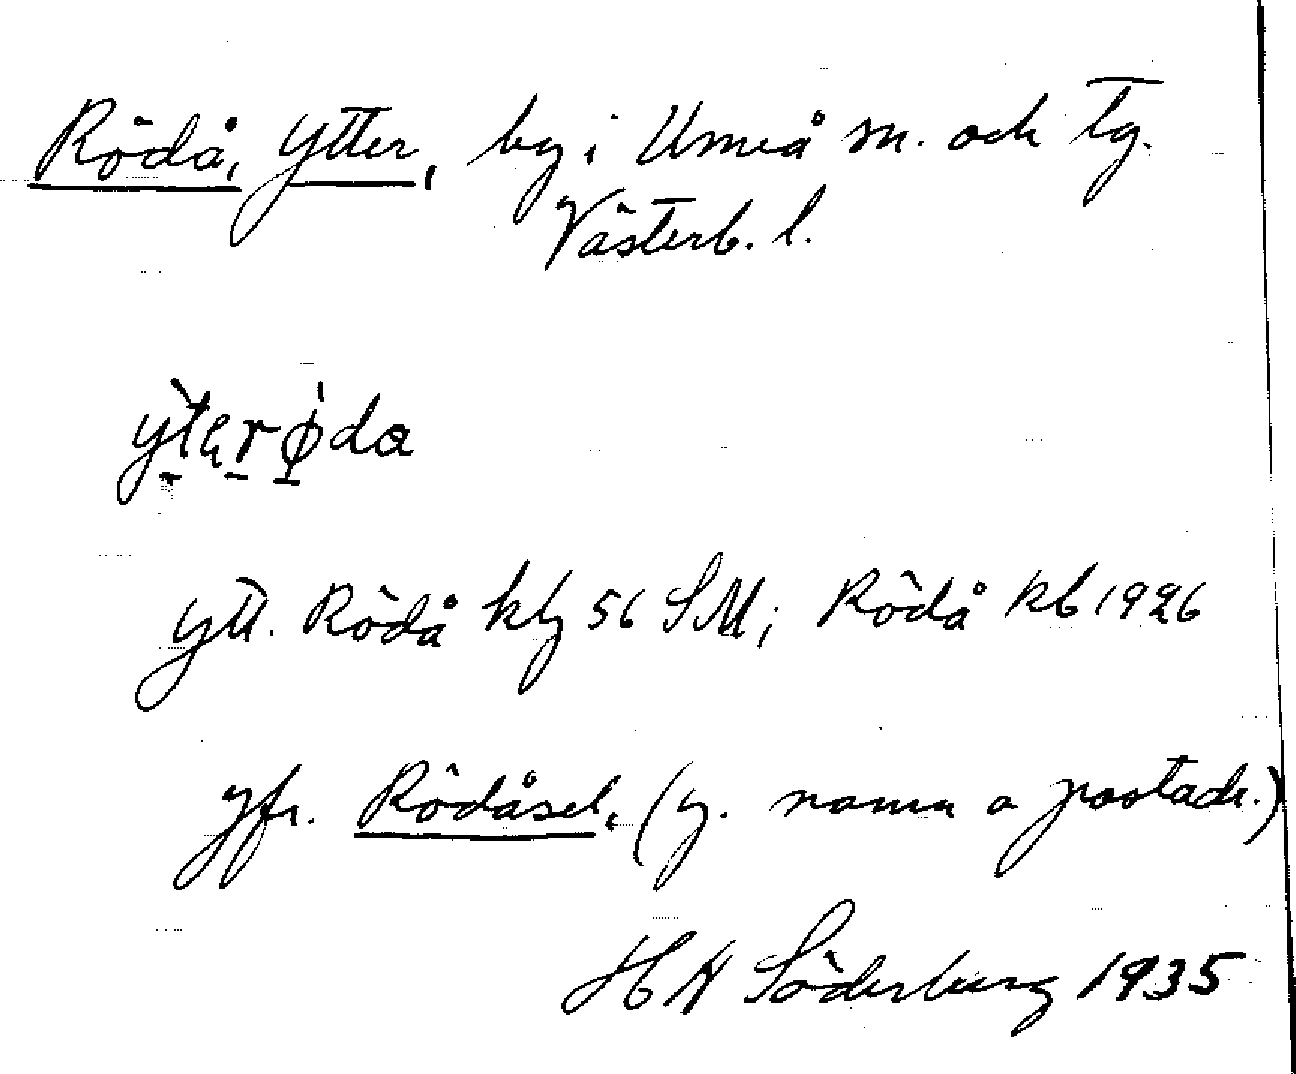 Rödå, Ytter, by i Umeå sn. och tg.
Västerb. l.
ytt. Rödå kbg 56 SM; Rödå kb 1926
jfr. Rödåsel, (g. namn o postadr.)
H N Söderberg 1935